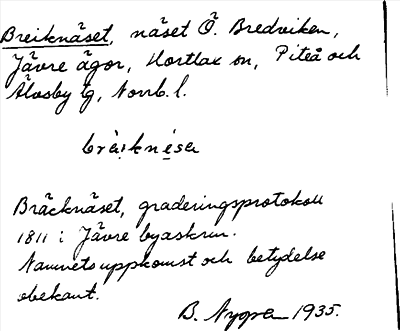 Breiknäset, näset Ö. Bredviken,
Jävre ägor, Hortlax sn, Piteå och
Älvsby tg, Norrb. l.
bräiknése
Bräcknäset, graderingsprotokoll
1811 i Jävre byaskrin.
Namnets uppkomst och betydelse
obekant.
B. Nygren 1935.